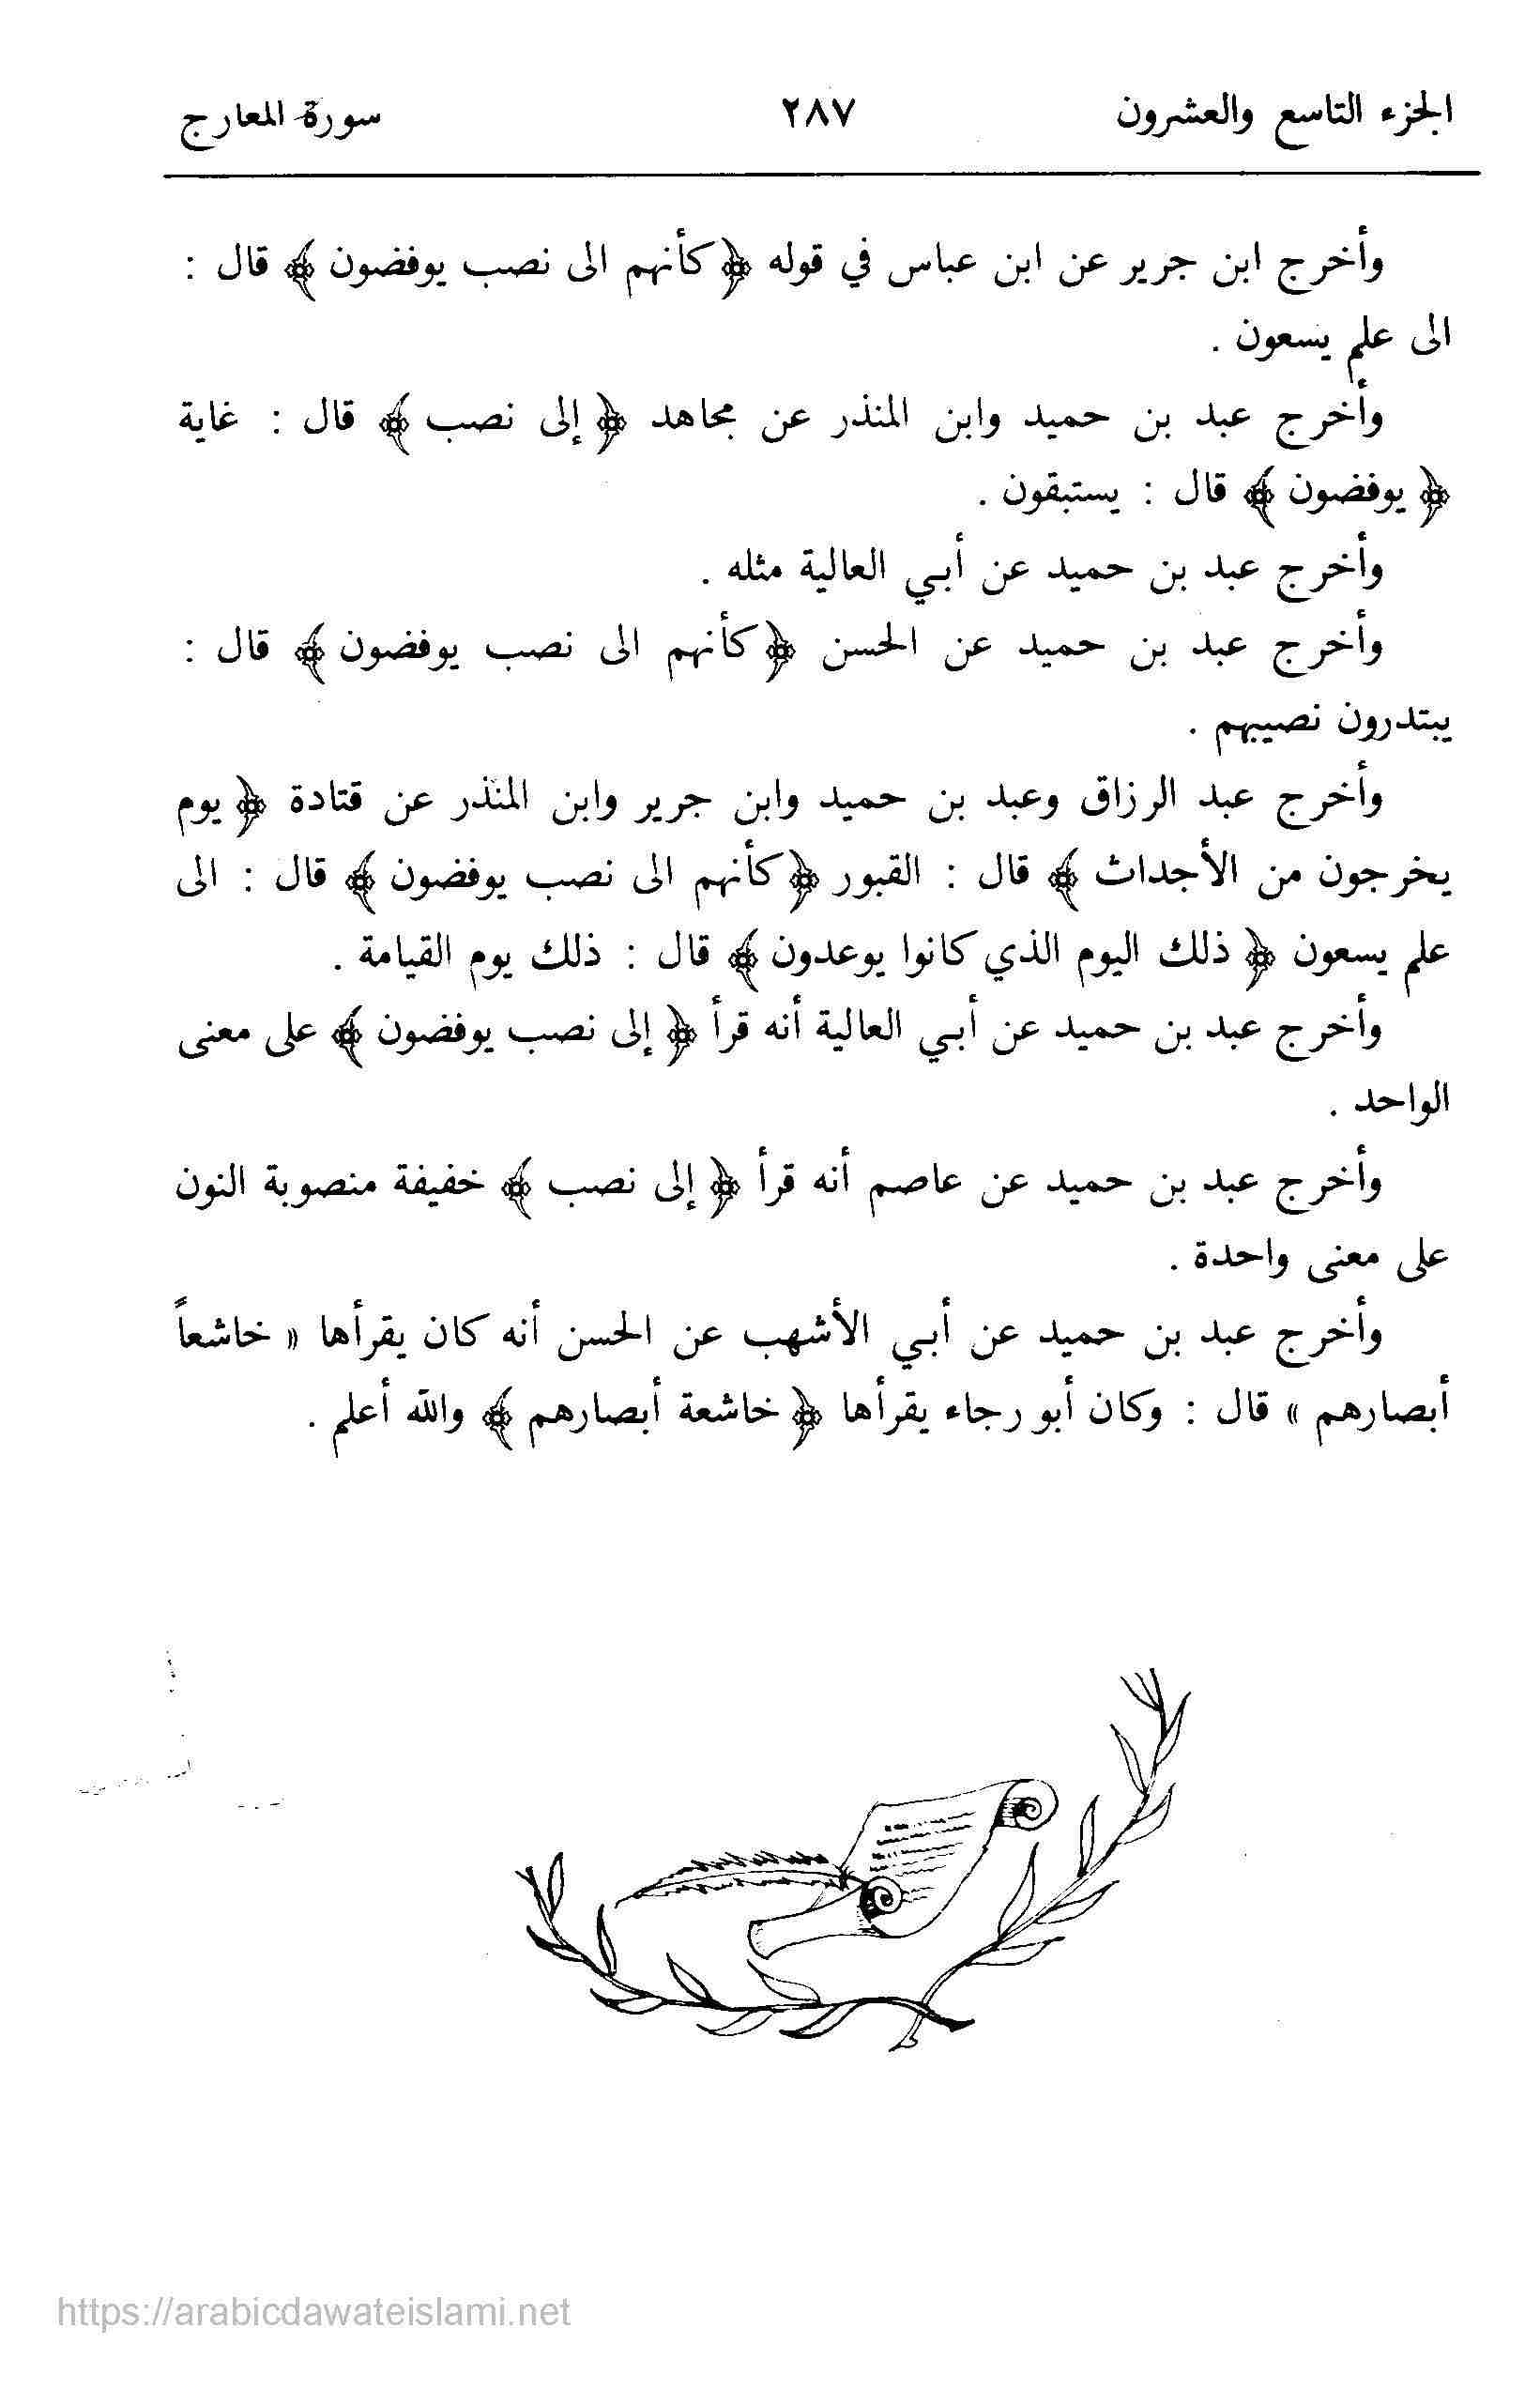 الجزء التاسع والعشرون ٢٨٧ سورة المعارج
وأخرج ابن جرير عن ابن عباس في قوله ﴿كأنهم الى نصب يوفضون﴾ قال :
الى علم يسعون .
وأخرج عبد بن حميد وابن المنذر عن مجاهد ﴿إلى نصب﴾ قال : غاية
﴿يوفضون﴾ قال : يستبقون .
وأخرج عبد بن حميد عن أبي العالية مثله .
وأخرج عبد بن حميد عن الحسن ﴿كأنهم الى نصب يوفضون﴾ قال :
يبتدرون نصيبهم .
وأخرج عبد الرزاق وعبد بن حميد وابن جرير وابن المنذر عن قتادة ﴿يوم
يخرجون من الأجداث﴾ قال : القبور ﴿كأنهم الى نصب يوفضون﴾ قال : الى
علم يسعون ﴿ذلك اليوم الذي كانوا يوعدون﴾ قال : ذلك يوم القيامة .
وأخرج عبد بن حميد عن أبي العالية أنه قرأ ﴿إلى نصب يوفضون﴾ على معنى
الواحد .
وأخرج عبد بن حميد عن عاصم أنه قرأ ﴿إلى نصب﴾ خفيفة منصوبة النون
على معنى واحدة .
وأخرج عبد بن حميد عن أبي الأشهب عن الحسن أنه كان يقرأها « خاشعاً
أبصارهم » قال : وكان أبو رجاء يقرأها ﴿خاشعة أبصارهم﴾ والله أعلم .
https://arabicdawateislami.net